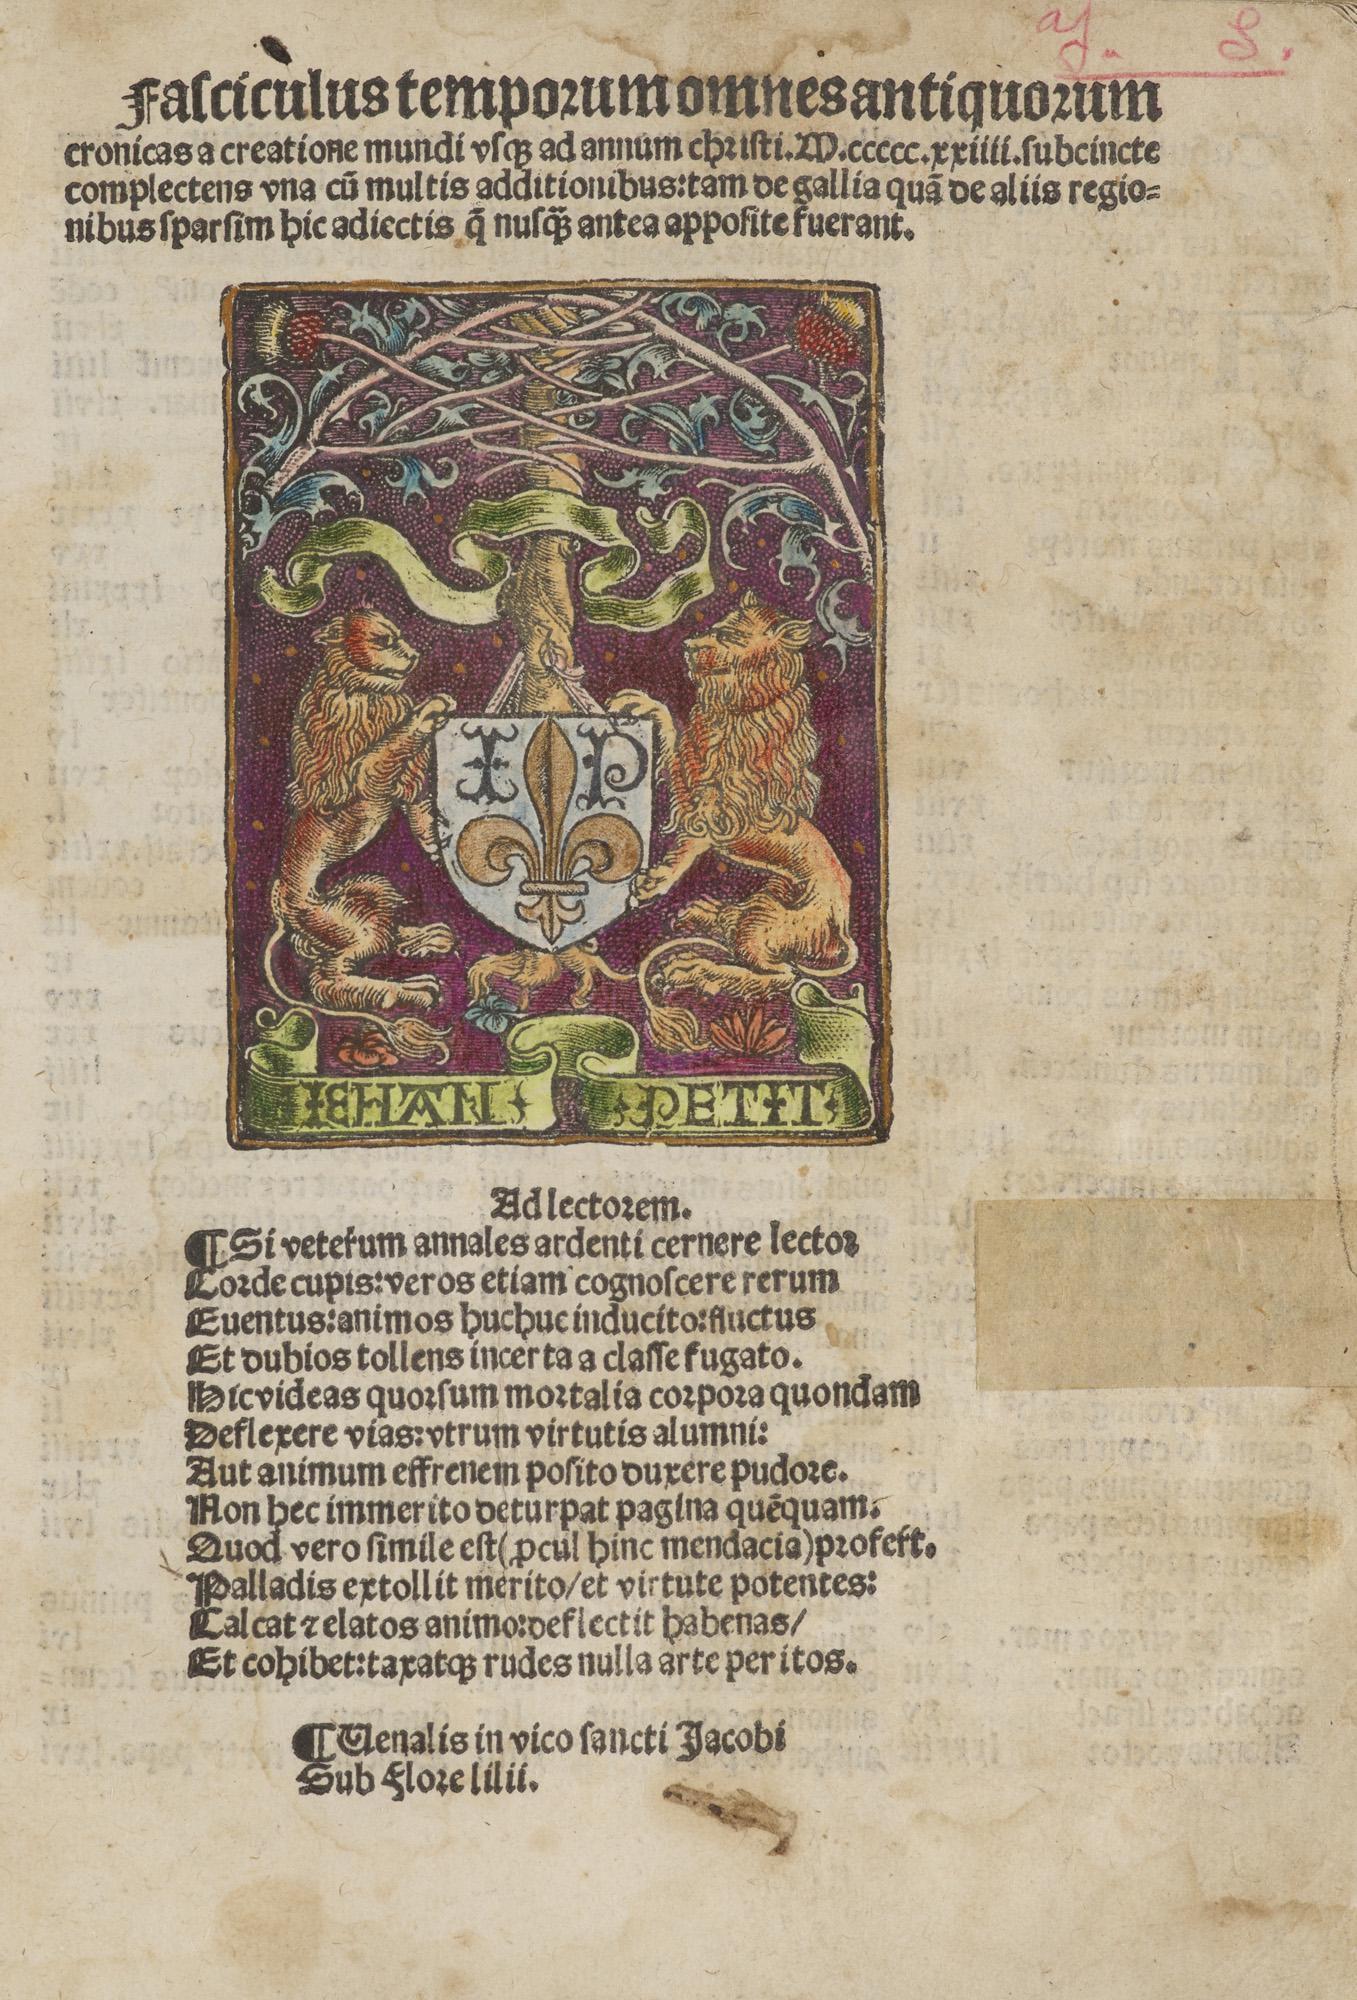 Fasciculus temporum omnes antiquorum
cronicas a creatione mundi vsqꝫ ad annum christi.M.ccccc.xxiiii.subcincte
complectens vna cū multis additionibus:tam de gallia quā de aliis regio=
nibus sparsim hic adiectis q̄ nusq̄ꝫ antea apposite fuerant.
I P
IEHAN PETIT
Ad lectorem.
¶ Si veterum annales ardenti cernere lector
Corde cupis:veros etiam cognoscere rerum
Euentus:animos huchuc inducito:fluctus
Et dubios tollens incerta a classe fugato.
Hic videas quorsum mortalia corpora quondam
Deflexere vias:vtrum virtutis alumni:
Aut animum effrenem posito duxere pudore.
Non hec immerito deturpat pagina quēquam.
Quod vero simile est(ꝓcul hinc mendacia)profert.
Palladis extollit merito/et virtute potentes:
Calcat ⁊ elatos animo:deflectit habenas/
Et cohibet:taxatqꝫ rudes nulla arte peritos.
¶ Uenalis in vico sancti Jacobi
Sub flore lilii.